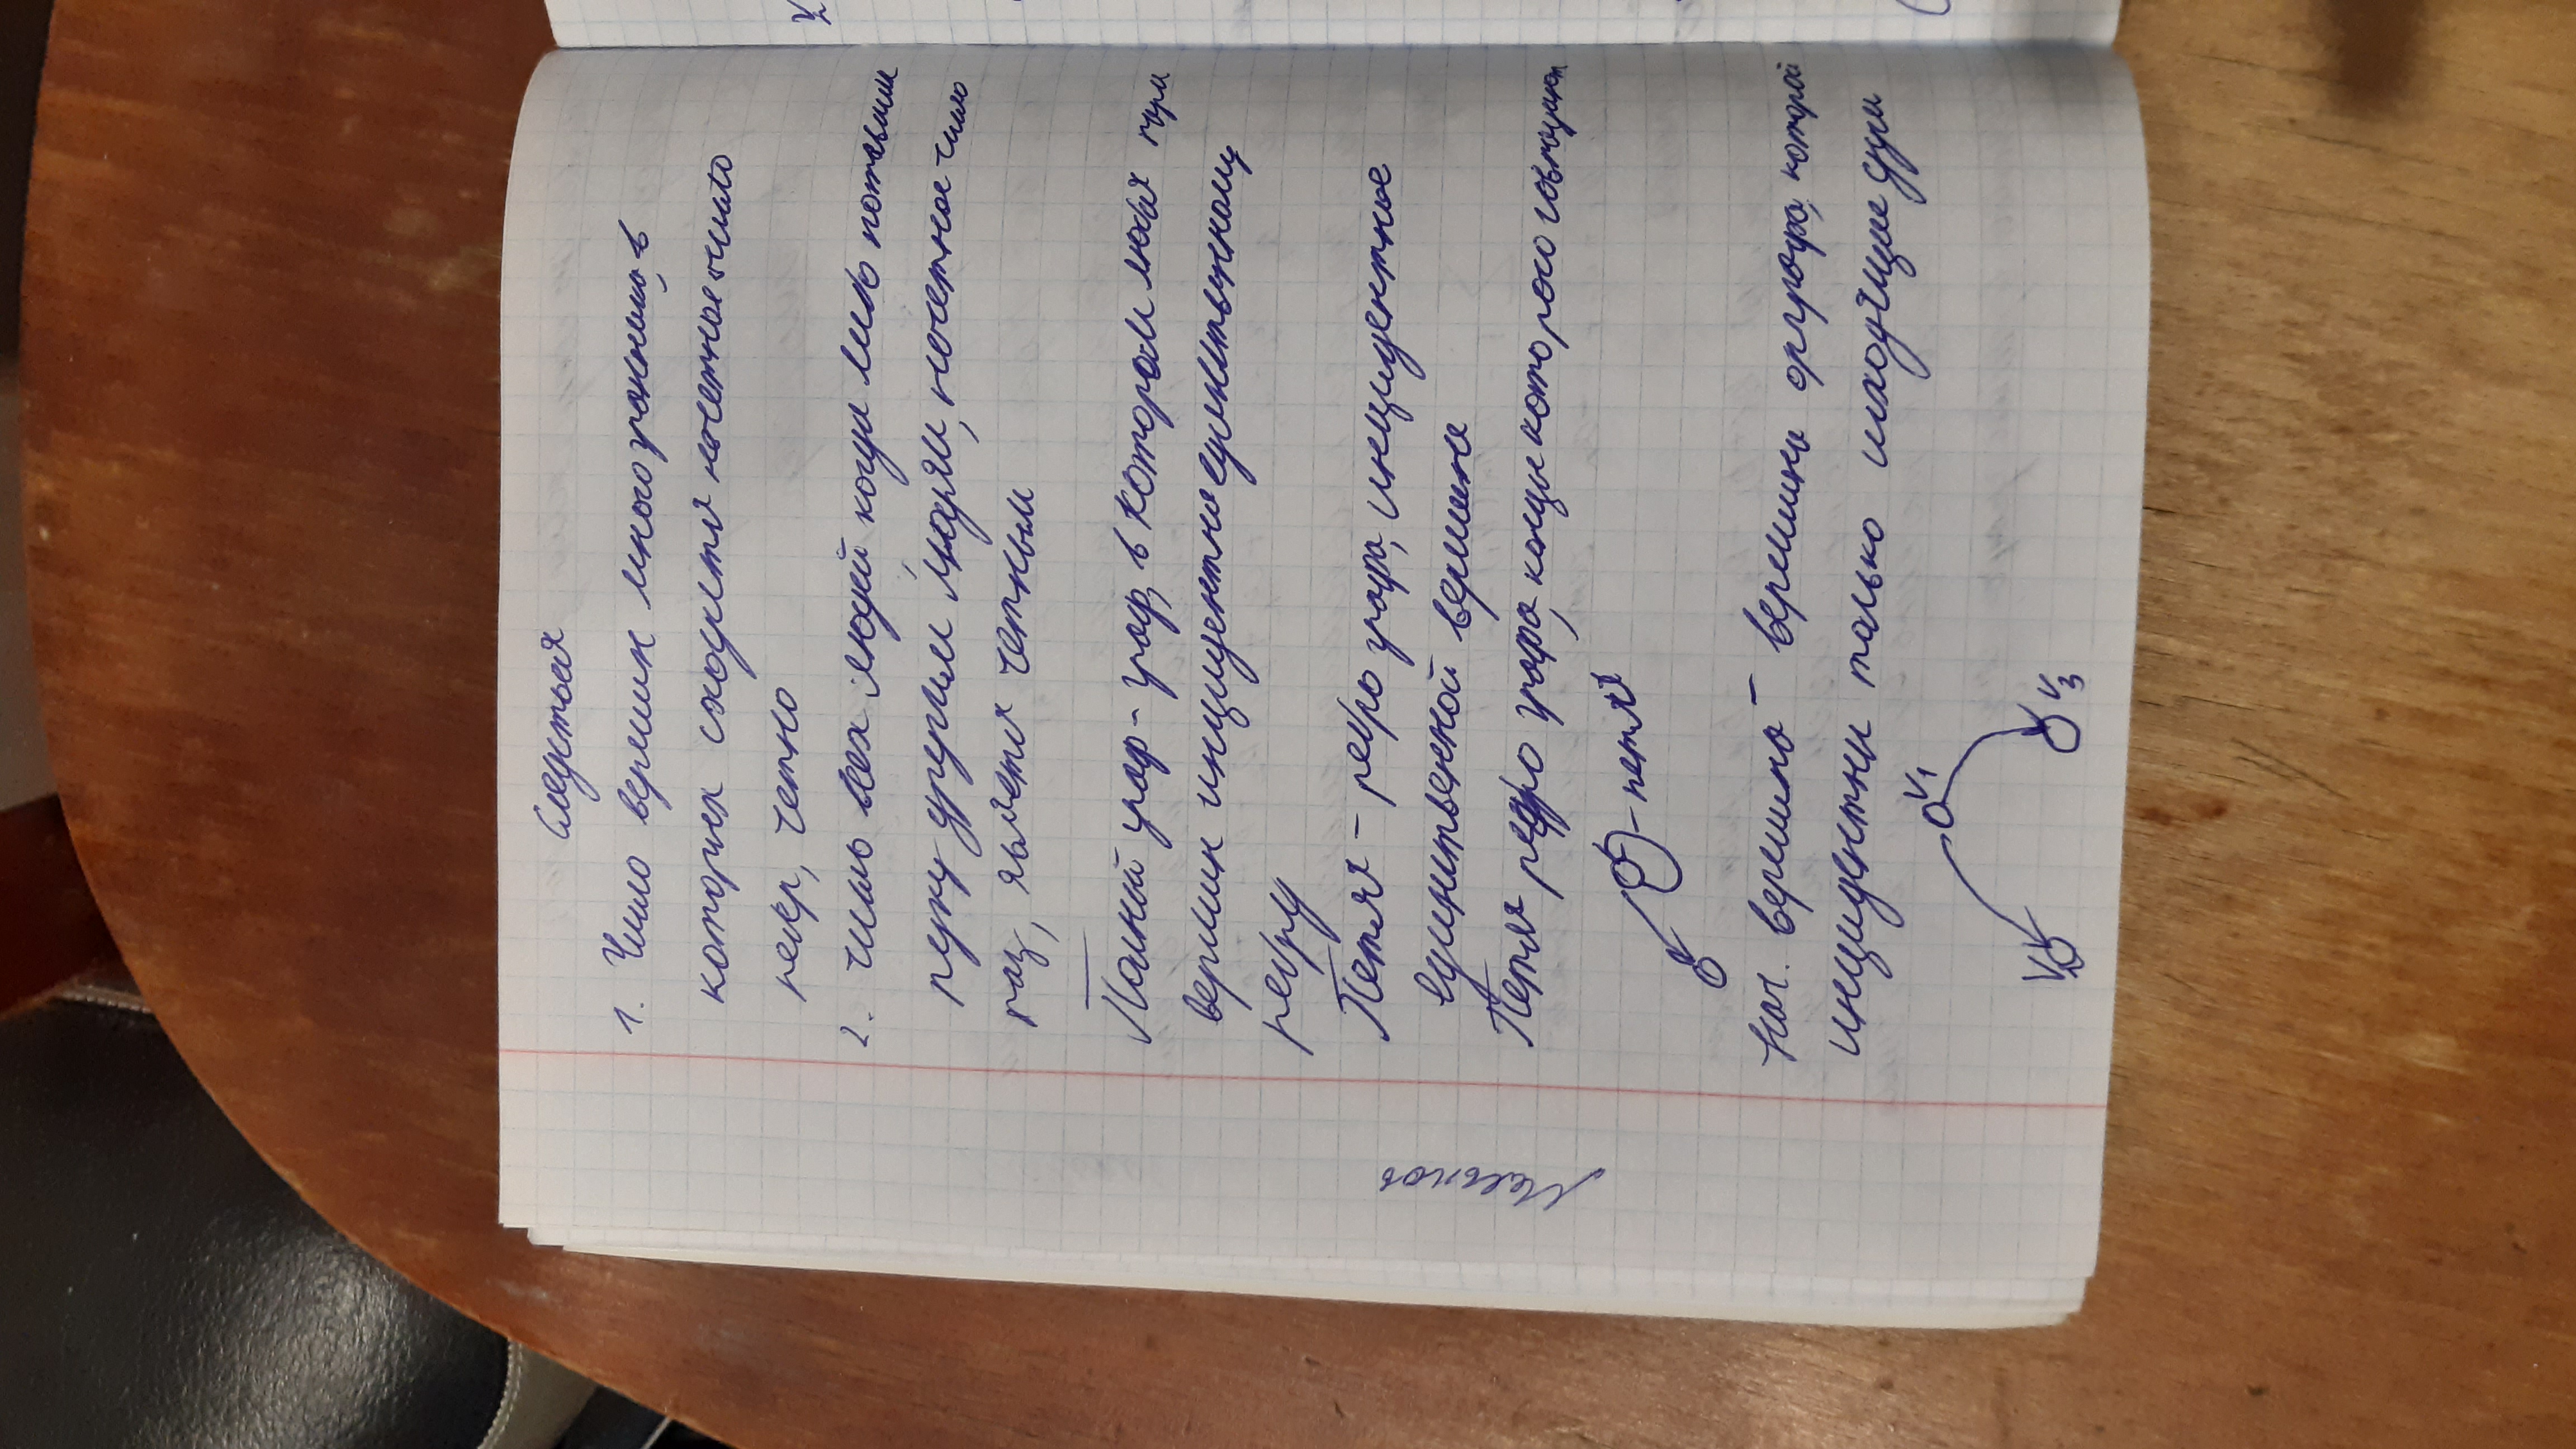 Следствия
1. Число вершин многогранника, в
которых сходится нечетное число
ребер, четно
2. число всех людей когда либо пожавших
руку другим людям, нечетное число
раз, является четным
Полный граф - граф, в котором любая пара
вершин инцидентна единственному
ребру
Петля - ребро графа, инцидентное
единственной вершине
Петля ребро графа, концы которого совпадают
- петля
Нач. вершина - вершина орграфа, которой
инцидентны только исходящие дуги
V1
V2
V3
V2